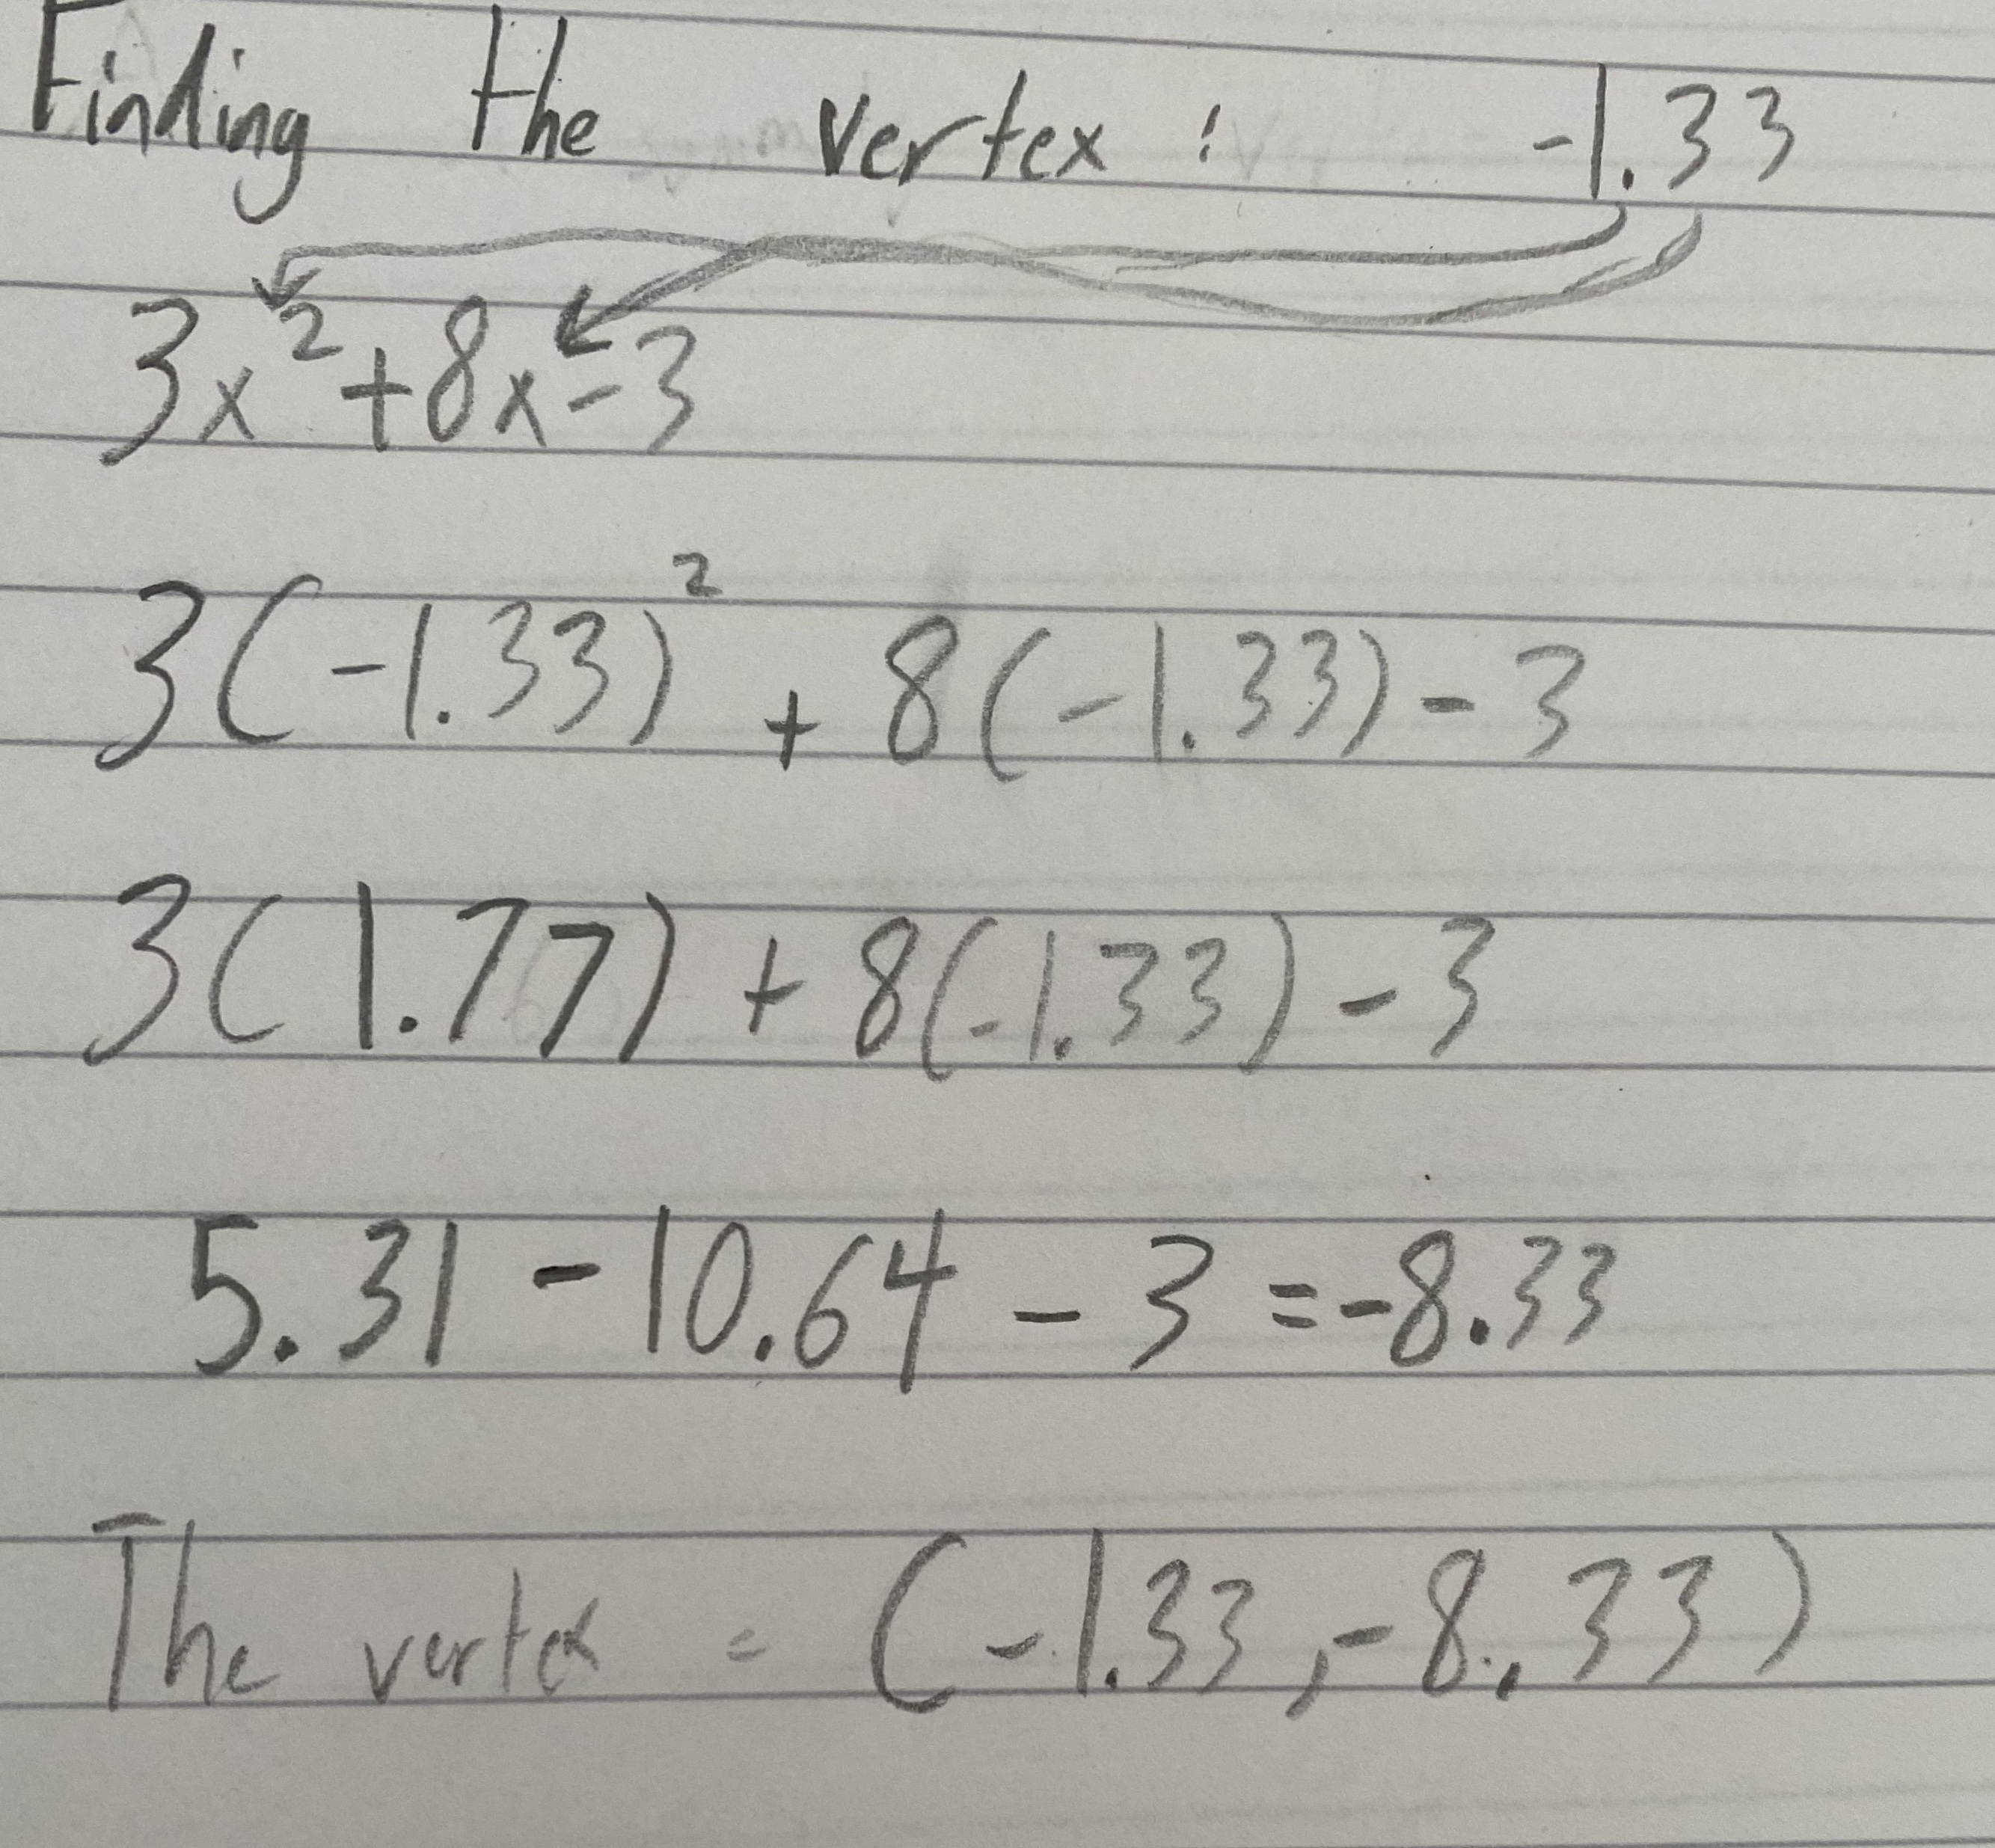 Finding the vertex : -1.33
3x²+8x-3
3(-1.33)² + 8(-1.33) - 3
3(1.77) + 8(-1.33) - 3
5.31 - 10.64 - 3 = -8.33
The vertex = (-1.33, -8.33)